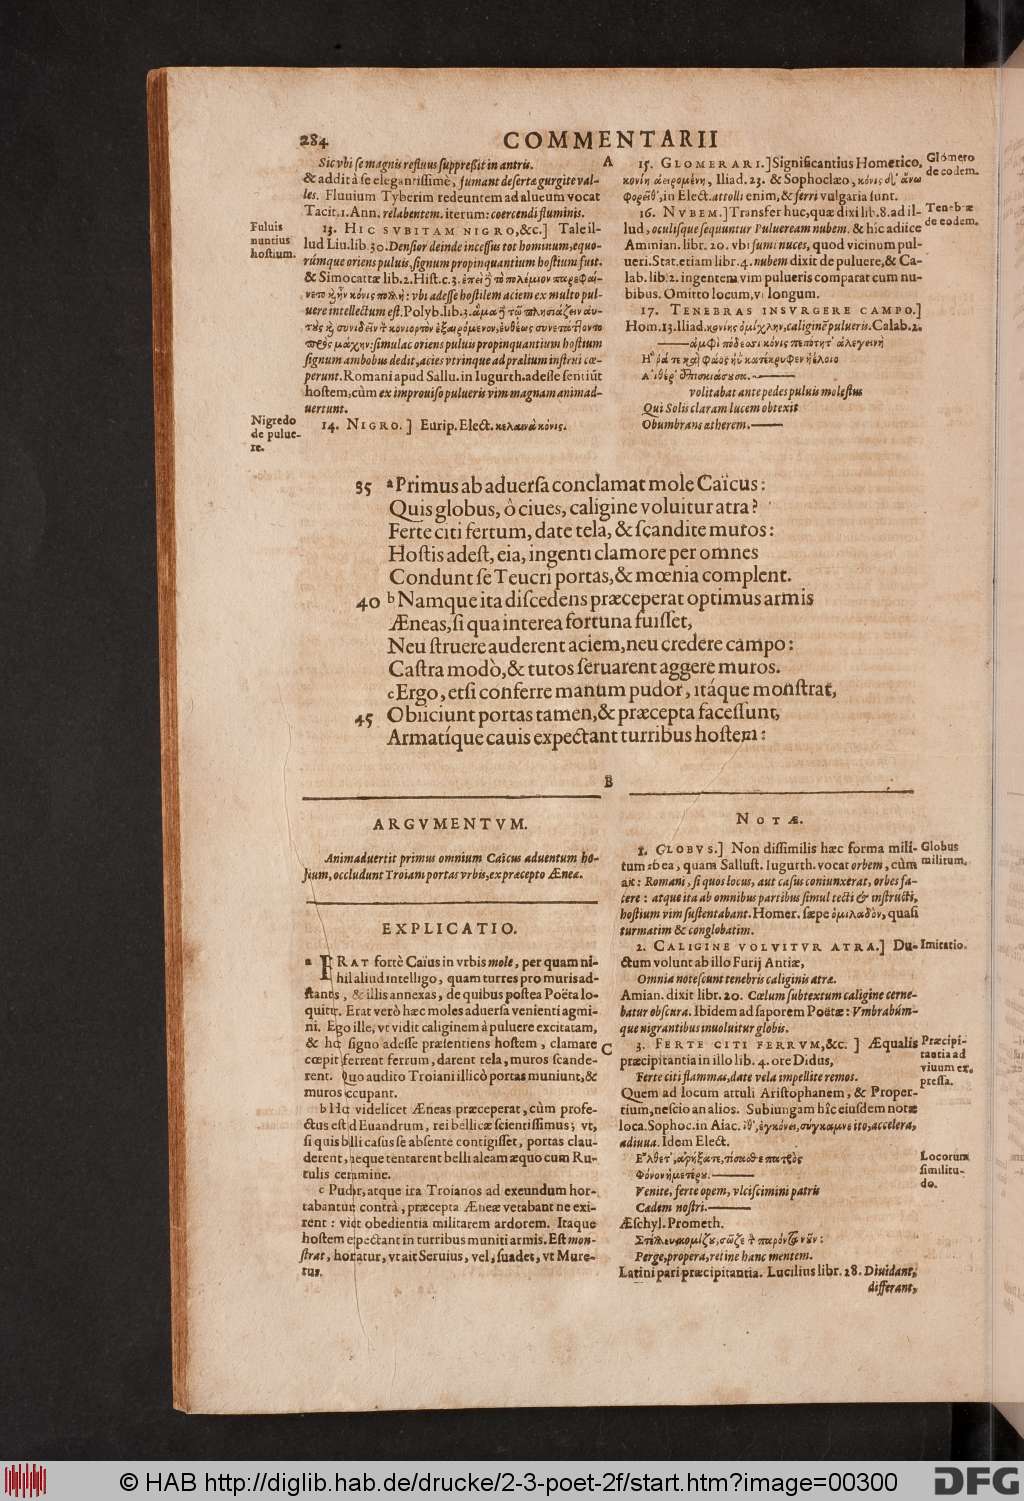 284
COMMENTARII
Sic vbi se magnis refluus suppreßit in antris.
& addit à se elegantissimè, fumant deserta gurgite val-
les. Fluuium Tyberim redeuntem ad alueum vocat
Tacit. 1. Ann. relabentem. iterum: coercendi fluminis.
Fuluis
nuntius
hostium.
13. HIC SVBITAM NIGRO, &c.] Tale il-
lud Liu. lib. 30. Densior deinde incessus tot hominum, equo-
rúmque oriens puluis, signum propinquantium hostium fuit.
& Simocattæ lib. 2. Hist. c. 3. ἐπεὶ ἢ τὸ πολέμιον παρεφαί-
νετο κỳ ἦν κόνις πολλὴ: vbi adesse hostilem aciem ex multo pul-
uere intellectum est. Polyb. lib. 3. ἅμα ἢ τῷ πλησιάζειν αὐ-
τοὺς κỳ συνιδεῖν τ̀ κονιορτὸν ἐξαιρόμενον, εὐθέως συνετάτ]οντο
πρὸς μάχην: simulac oriens puluis propinquantium hostium
signum ambobus dedit, acies vtrinque ad prælium instrui cœ-
perunt. Romani apud Sallu. in Iugurth. adesse sentiūt
hostem, cùm ex improuiso pulueris vim magnam animad-
uertunt.
Nigredo
de pulue-
re.
14. NIGRO.] Eurip. Elect. κελαινὰ κόνις.
A
15. GLOMERARI.] Significantius Homerico,
κονίη ἀειρομένη, Iliad. 23. & Sophoclæo, κόνις δ' ἄνω
φορεῖθ', in Elect. attolli enim, & ferri vulgaria sunt.
Glómero
de eodem.
16. NVBEM.] Transfer huc, quæ dixi lib. 8. ad il-
lud, oculisque sequuntur Pulueream nubem. & hic adiice
Ammian. libr. 20. vbi fumi nuces, quod vicinum pul-
ueri. Stat. etiam libr. 4. nubem dixit de puluere, & Ca-
lab. lib. 2. ingentem vim pulueris comparat cum nu-
bibus. Omitto locum, vt longum.
Tenebræ
de eodem.
17. TENEBRAS INSVRGERE CAMPO.]
Hom. 13. Iliad. κονίης ὀμίχλην, caliginē pulueris. Calab. 2.
—ἀμφὶ πόδεσσι κόνις πεπότητ' ἀλεγεινὴ
Ἠ ρά τε κ̀ φάος ἠῢ κατέκρυφεν ἠέλοιο
Αἰθέρ' ἐπισκιάουσα. —
volitabat ante pedes puluis molestus
Qui Solis claram lucem obtexit
Obumbrans ætherem. —
35 a Primus ab aduersa conclamat mole Caïcus:
Quis globus, ò ciues, caligine voluitur atra?
Ferte citi fertum, date tela, & scandite muros:
Hostis adest, eia, ingenti clamore per omnes
Condunt se Teucri portas, & mœnia complent.
40 b Namque ita discedens præceperat optimus armis
Æneas, si qua interea fortuna fuisset,
Neu struere auderent aciem, neu credere campo:
Castra modò, & tutos seruarent aggere muros.
c Ergo, etsi conferre manum pudor, itáque monstrat,
45 Obiiciunt portas tamen, & præcepta facessunt,
Armatíque cauis expectant turribus hostem:
B
ARGVMENTVM.
Animaduertit primus omnium Caïcus aduentum ho-
stium, occludunt Troiani portas vrbis, ex præcepto Æneæ.
EXPLICATIO.
a ERAT fortè Caïus in vrbis mole, per quam ni-
hil aliud intelligo, quam turres pro muris ad-
stantes, & illis annexas, de quibus postea Poëta lo-
quitur. Erat verò hæc moles aduersa venienti agmi-
ni. Ego ille, vt vidit caliginem à puluere excitatam,
& hoc signo adesse præsentiens hostem, clamare
cœpit ferrent ferrum, darent tela, muros scande-
rent. Quo audito Troiani illicò portas muniunt, &
muros occupant.
b Ita videlicet Æneas præceperat, cùm profe-
ctus est ad Euandrum, rei bellicæ scientissimus; vt,
si quis belli casus se absente contigisset, portas clau-
derent, neque tentarent belli aleam æquo cum Ru-
tulis certamine.
c Pudor, atque ira Troianos ad exeundum hor-
tabantur: contrà, præcepta Æneæ vetabant ne exi-
rent: vicit obedientia militarem ardorem. Itaque
hostem expectant in turribus muniti armis. Est mon-
strat, hortatur, vt ait Seruius, vel, suadet, vt Mure-
tus.
NOTÆ.
1. GLOBVS.] Non dissimilis hæc forma mili-
tum ebea, quam Sallust. Iugurth. vocat orbem, cùm
ait: Romani, si quos locus, aut casus coniunxerat, orbes fa-
cere: atque ita ab omnibus partibus simul tecti & instructi,
hostium vim sustentabant. Homer. sæpe ὁμιλαδὸν, quasi
turmatim & conglobatim.
Globus
militum.
2. CALIGINE VOLVITVR ATRA.] Du-
ctum volunt ab illo Furij Antiæ,
Imitatio.
Omnia notescunt tenebris caliginis atræ.
Amian. dixit libr. 20. Cælum subtextum caligine cerne-
batur obscura. Ibidem ad saporem Poëtæ: Vmbrabúm-
que nigrantibus inuoluitur globis.
C
3. FERTE CITI FERRVM, &c.] Æqualis
præcipitantia in illo lib. 4. ore Didus,
Præcipi-
tantia ad
viuum ex-
pressa.
Ferte citi flammas, date vela, impellite remos.
Quem ad locum attuli Aristophanem, & Proper-
tium, nescio an alios. Subiungam hîc eiusdem notæ
loca. Sophoc. in Aiac. ἴθ', ἐγκόνει, σύγκαμνε ito, accelera,
adiuua. Idem Elect.
Ἔλθετ', ἀρήξατε, τίσασθε πατρὸς
Φόνον ἡμετέρου. —
Venite, ferte opem, vlciscimini patris
Cadem nostri. —
Locorum
similitu-
do.
Æschyl. Prometh.
Στέλλου, κομίζου, σῶζε τ̀ παρόντα νοῦν:
Perge, propera, retine hanc mentem.
Latini pari præcipitantia. Lucilius libr. 28. Diuidant,
differant,
© HAB http://diglib.hab.de/drucke/2-3-poet-2f/start.htm?image=00300
DFG